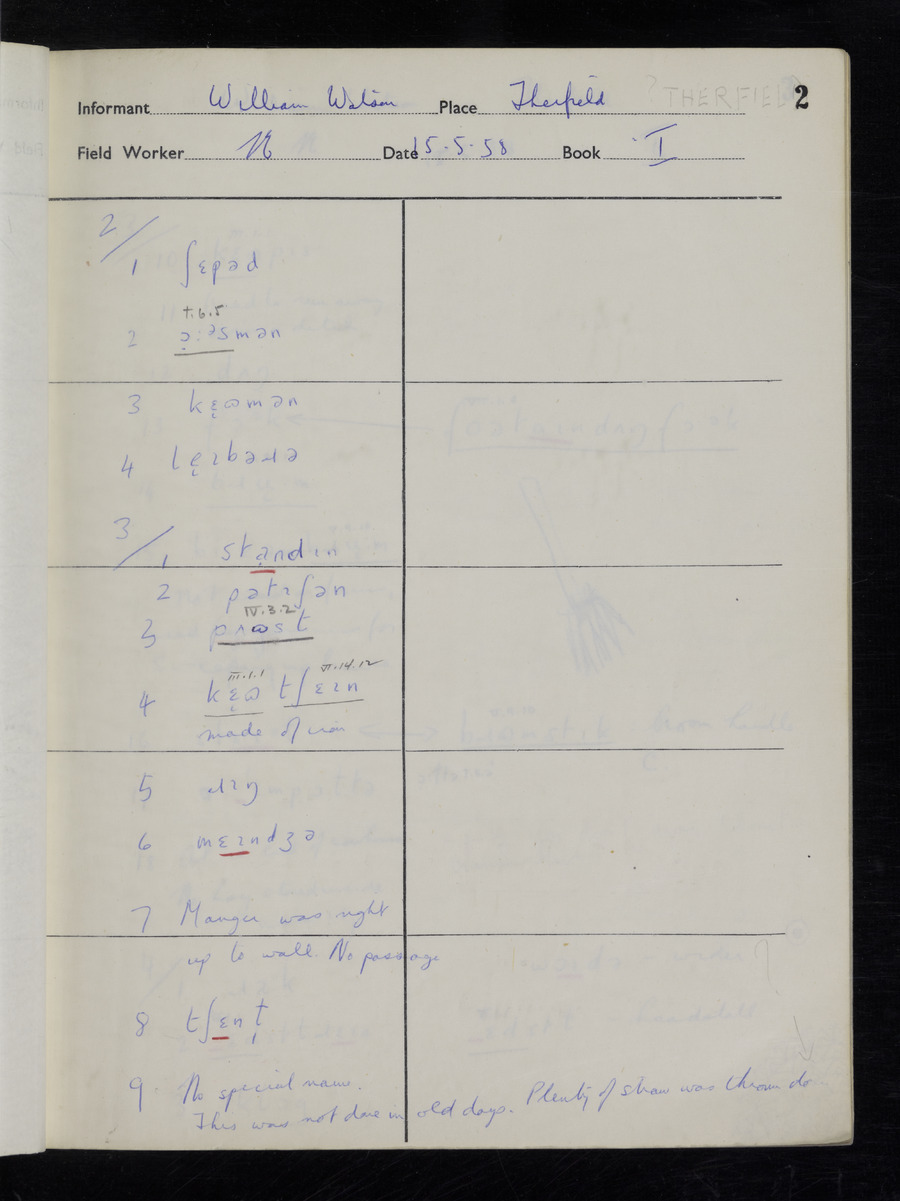 Informant William Watson Place Therfield ? THERFIELD 2
Field Worker N Date 15.5.58 Book I
2/
1 ʃɛpəd
†.6.5
2 ə:əsmən
3 kɛ̝ɷmən
4 lɛ̝ɪbəɹə
3/ 1 standɪn
2 pətɪʃən
IV.3.2
3 pɹɷst
III.1.1 VI.14.12
4 kɛ̝ɷ tʃɛɪn
made of iron
5 ɹɪŋ
6 mɛɪndʒə
7 Manger was right
up to wall. No passage
8 tʃɛnt̩
9. No special name.
This was not done in old days. Plenty of straw was thrown do